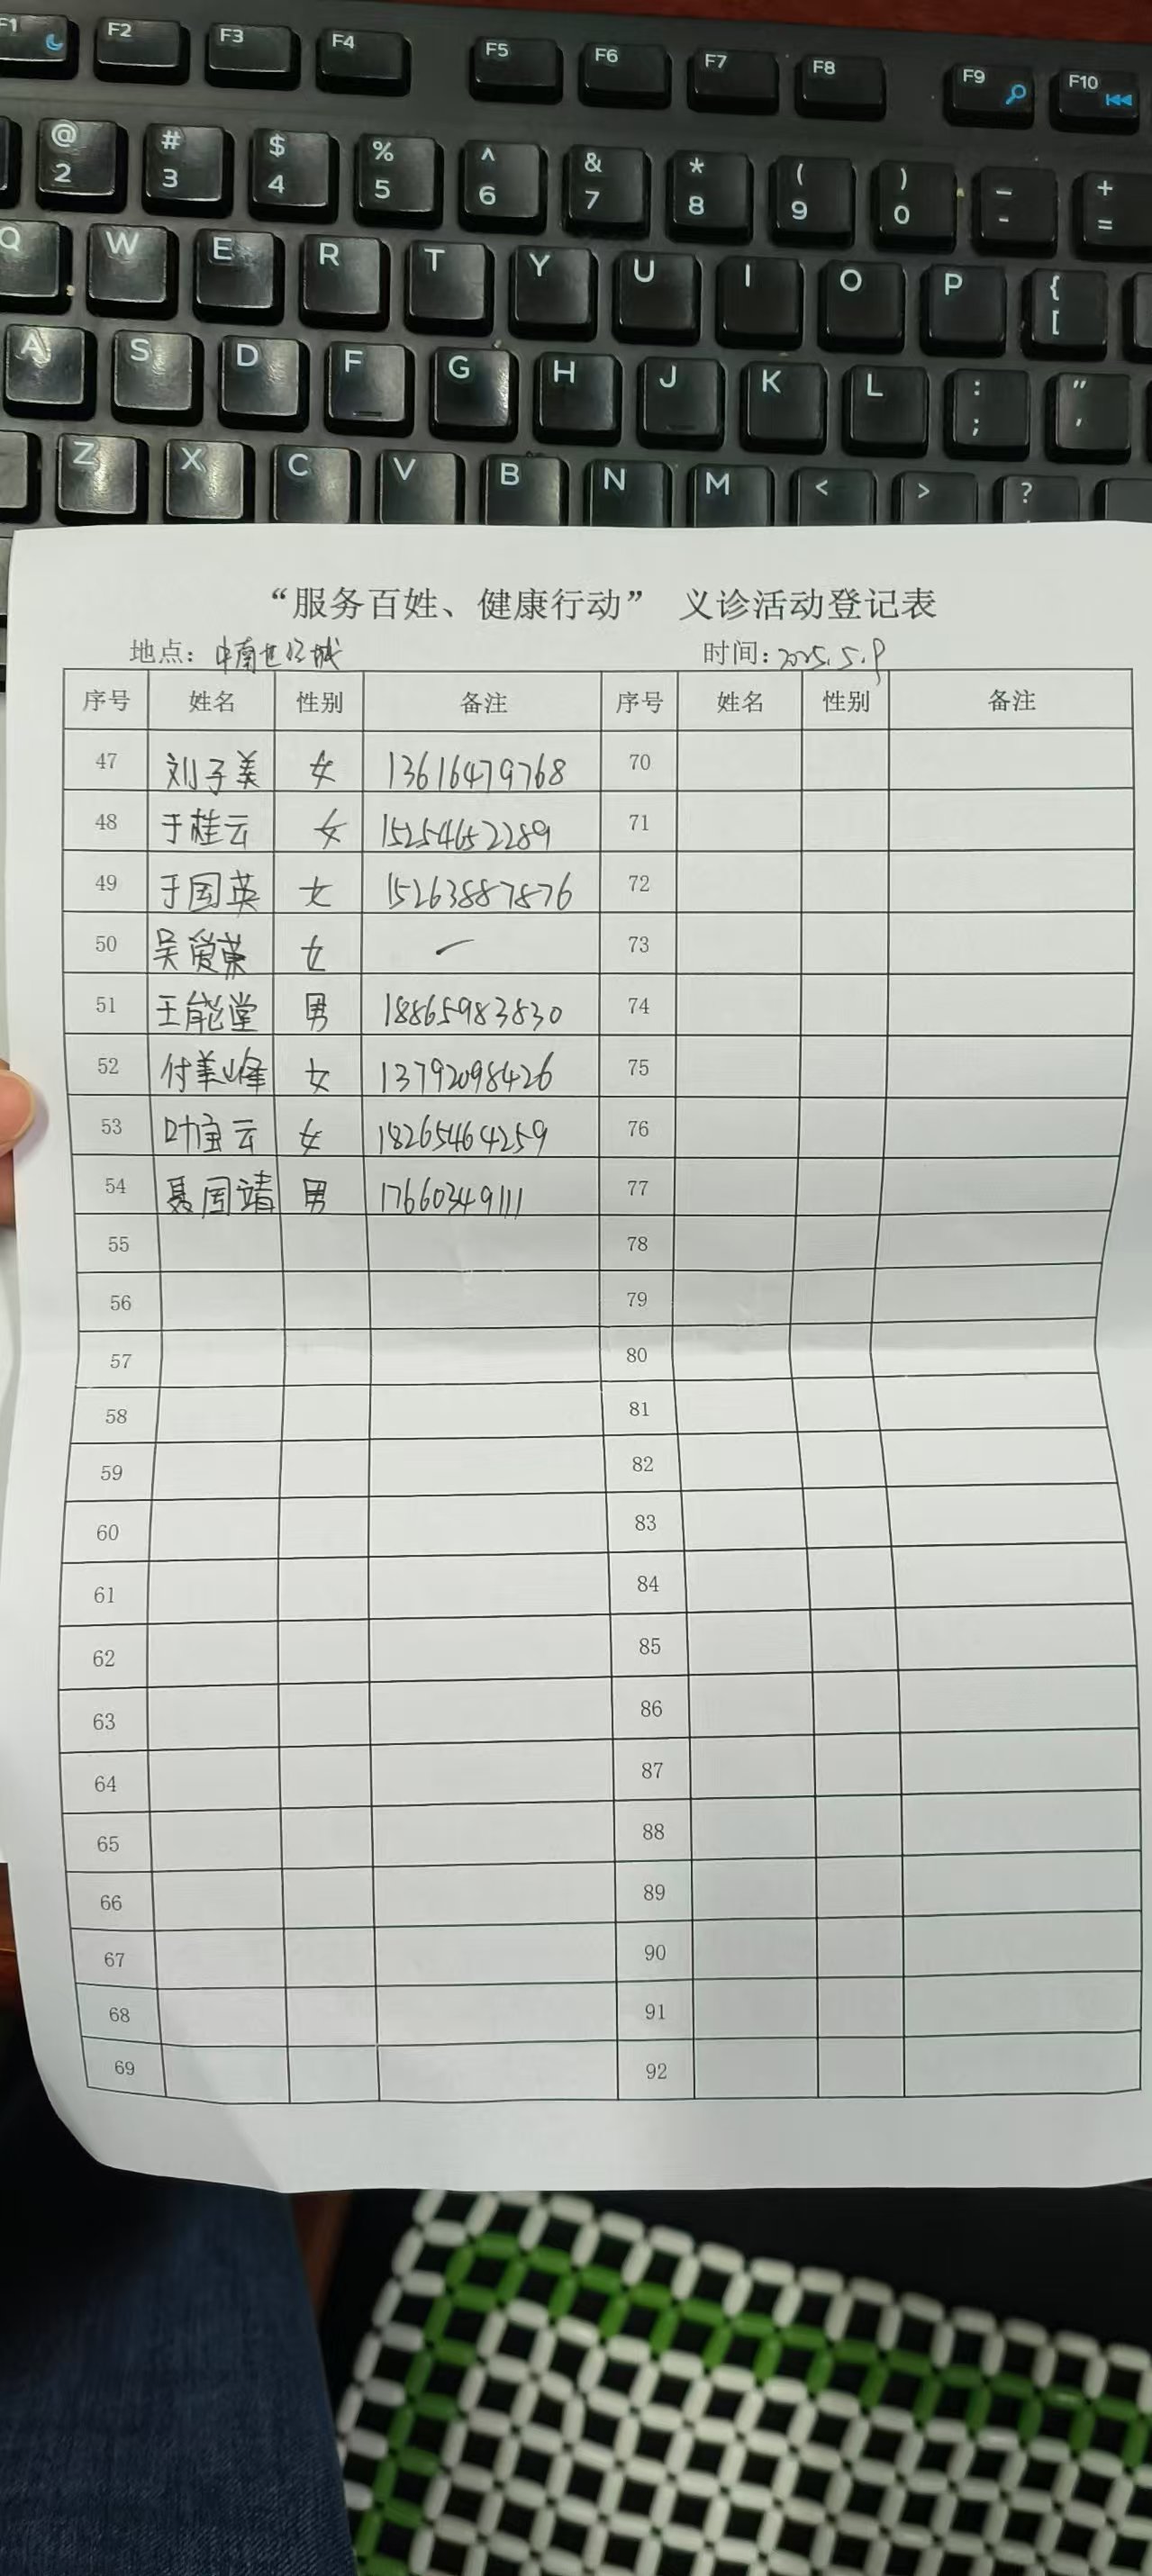 F1 F2 F3 F4 F5 F6 F7 F8 F9 F10
@ # $ % ^ & * ( ) _ +
2 3 4 5 6 7 8 9 0 - =
Q W E R T Y U I O P { [
A S D F G H J K L : ; " '
Z X C V B N M < > ?
“服务百姓、健康行动” 义诊活动登记表
地点：中南世纪城 时间：2025.5.9
序号 姓名 性别 备注 序号 姓名 性别 备注
47 刘子美 女 13616479768 70
48 于桂云 女 15254652289 71
49 于国英 女 15263887876 72
50 吴爱荣 女 — 73
51 王能堂 男 18865983830 74
52 付美峰 女 13792098426 75
53 叶宝云 女 18265464259 76
54 聂国靖 男 17660349111 77
55 78
56 79
57 80
58 81
59 82
60 83
61 84
62 85
63 86
64 87
65 88
66 89
67 90
68 91
69 92